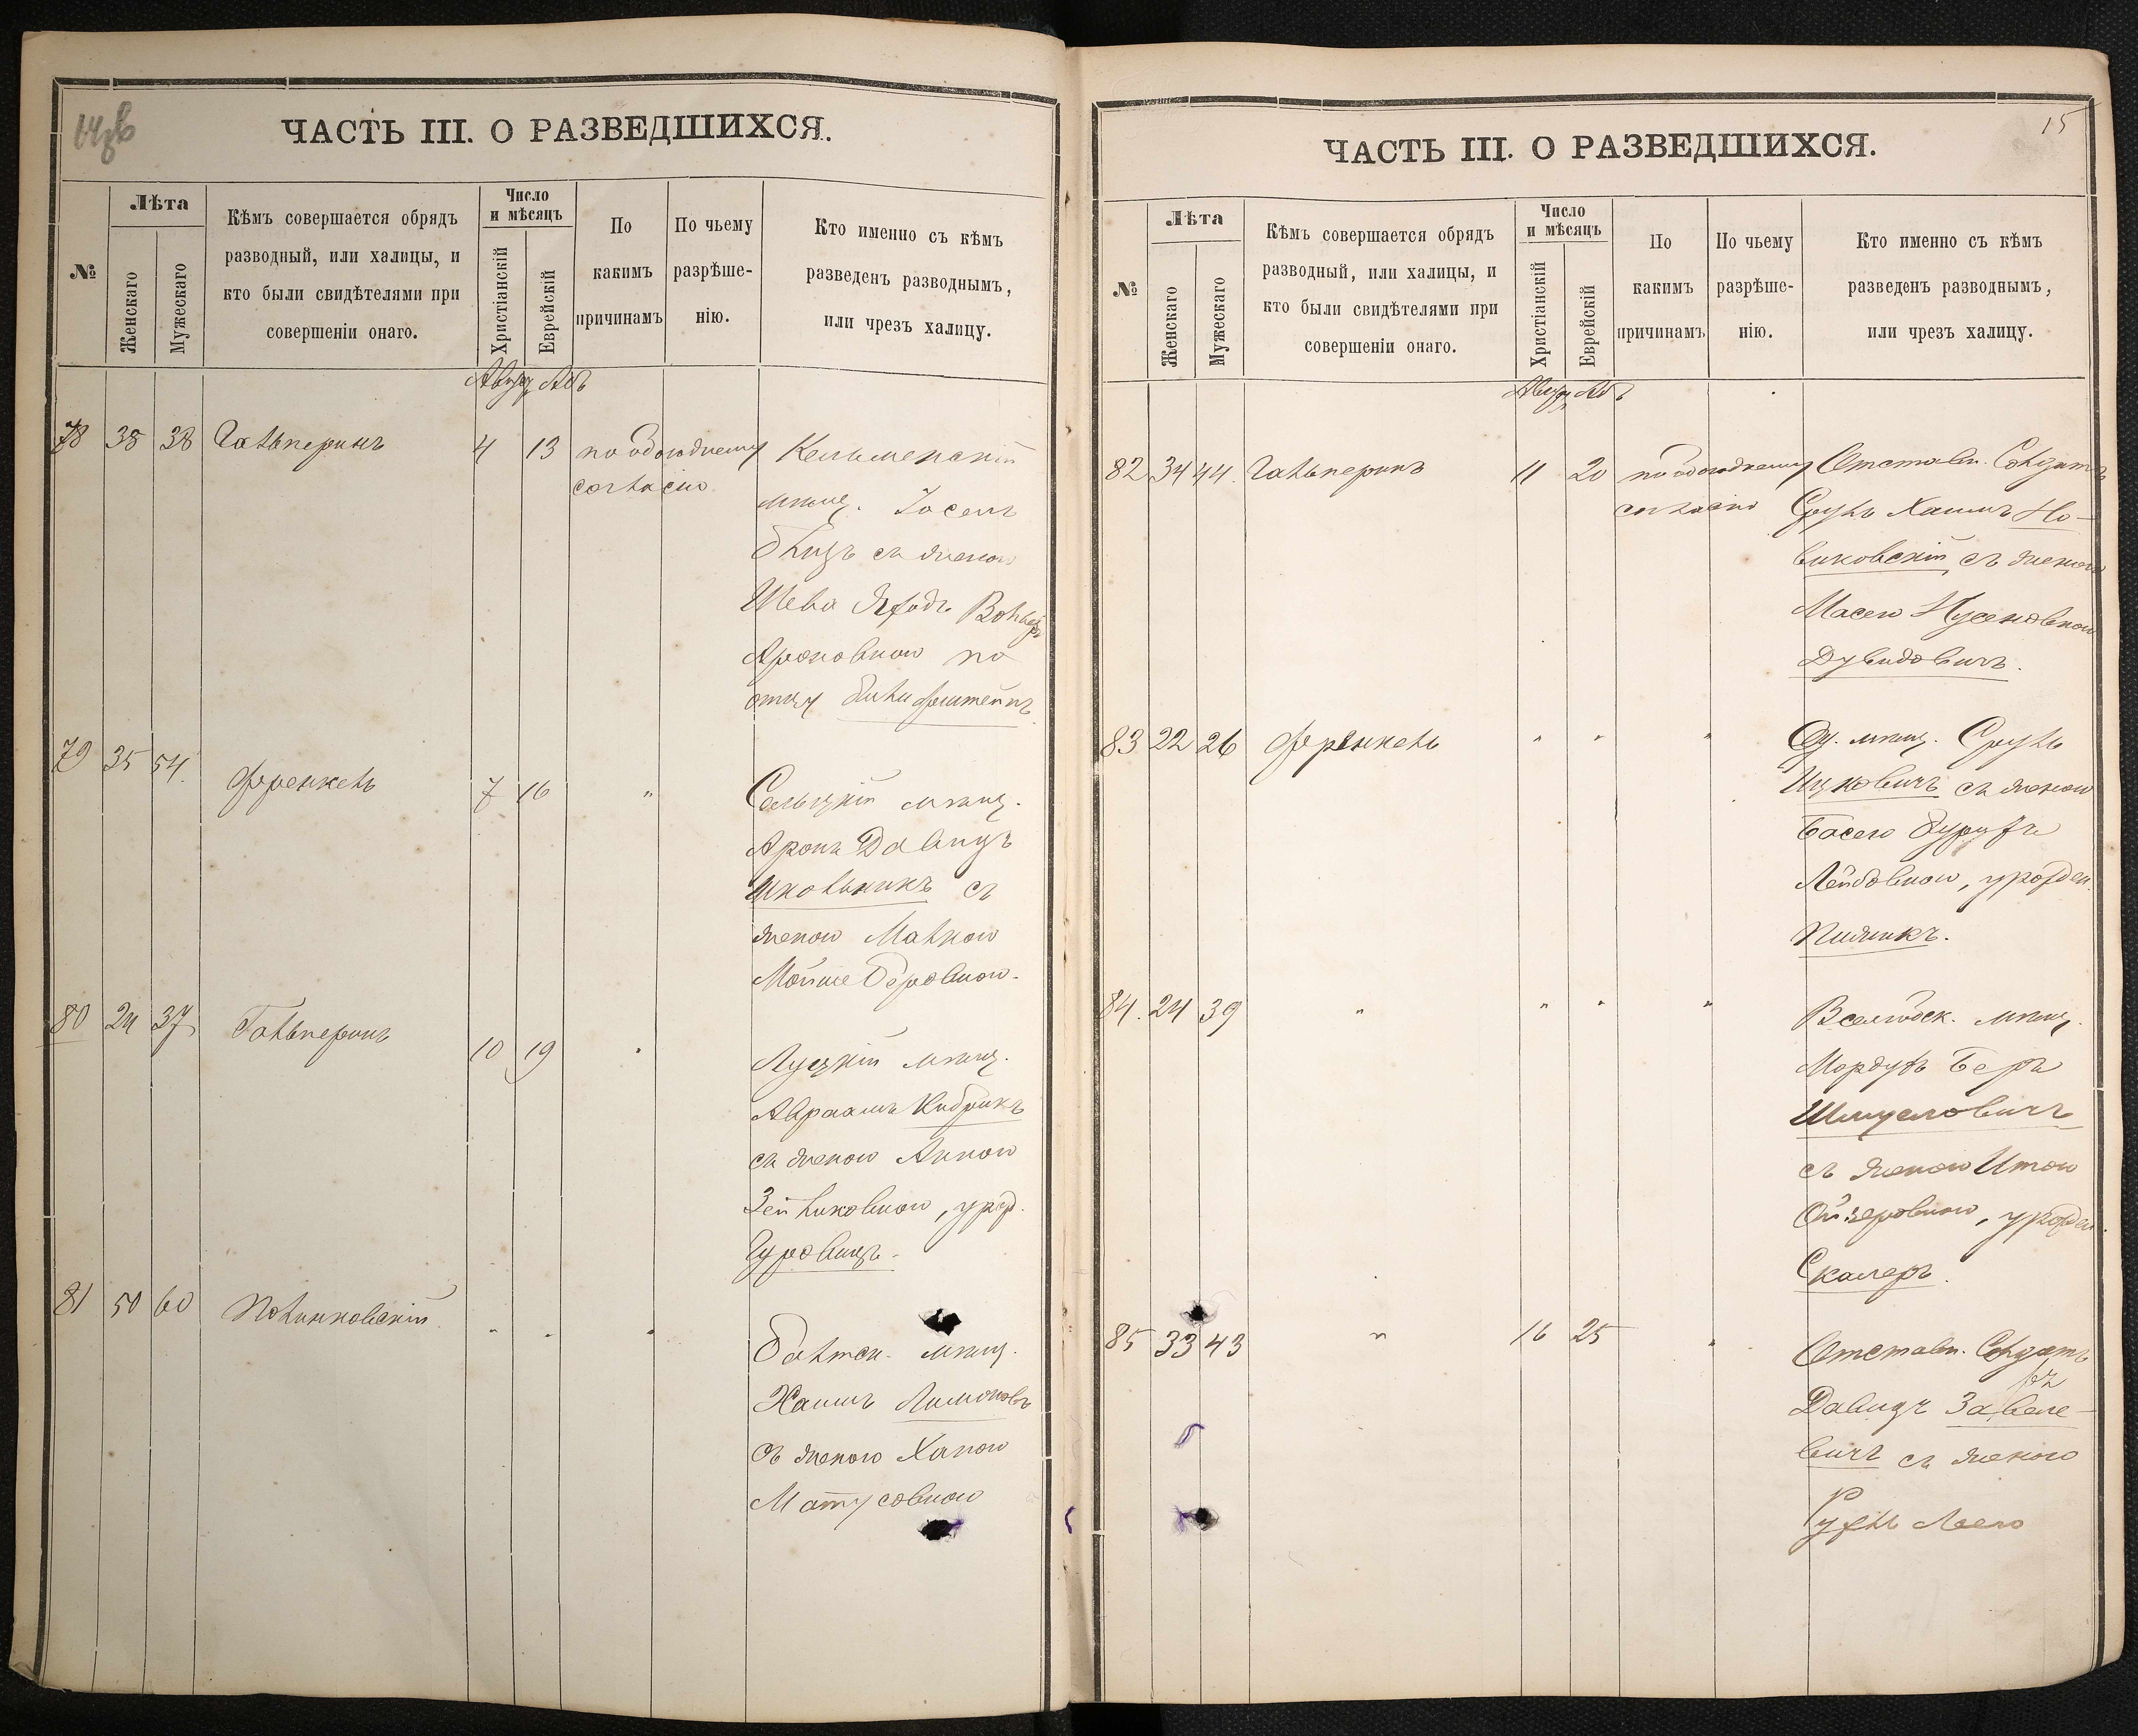 ЧАСТЬ III. О РАЗВЕДШИХСЯ.
№
Лѣта
Женскаго
Мужескаго
Кѣмъ совершается обрядъ
разводный, или халицы, и
кто были свидѣтелями при
совершеніи онаго.
Число
и мѣсяцъ
Христіанскій
Еврейскій
По
какимъ
причинамъ
По чьему
разрѣше-
нію.
Кто именно съ кѣмъ
разведенъ разводнымъ,
или чрезъ халицу.
Августъ Абъ
78 38 38 Гальперинъ 4 13 по обоюдному Кельменскій
согласію
мѣщ. Іосель
съ женою
Шева
Ароновною по
отцу
79 35 54 Френкель 7 16 "
мѣщ.
Аронъ Давидъ
Школьникъ съ
женою Малкою
Мойше Беровною.
80 24 37 Гальперинъ 10 19 "
Луцкій мѣщ.
Авраамъ Кибрикъ
съ женою Анною
Зейликовною, урожд.
Гуровичъ.
81 50 60 Полинковскій " " "
Балтск. мѣщ.
Хаимъ Лимоновъ
съ женою Ханою
Матусовною
ЧАСТЬ III. О РАЗВЕДШИХСЯ.
15
№
Лѣта
Женскаго
Мужескаго
Кѣмъ совершается обрядъ
разводный, или халицы, и
кто были свидѣтелями при
совершеніи онаго.
Число
и мѣсяцъ
Христіанскій
Еврейскій
По
какимъ
причинамъ
По чьему
разрѣше-
нію.
Кто именно съ кѣмъ
разведенъ разводнымъ,
или чрезъ халицу.
Августъ Абъ
82 34 44. Гальперинъ 11 20 по обоюдному Отставн. Солдатъ
согласію Сруль Хаимъ Но-
виковскій, съ женою
Масею Нусеновною
Дувидовичъ.
83 22 26 Френкель " " " Од. мѣщ. Сруль
Ицковичъ съ женою
Басею
Лейбовною, урожден.
Пижикъ.
84. 24 39 " " " "
мѣщ.
Мордухъ Беръ
Шмулевичъ
съ женою Итою
Ойзеровною, урожден.
Скаперъ.
85 33 43 " 16 25 "
Отставн. Солдатъ
Давидъ
вичъ съ женою
Рухль Леею